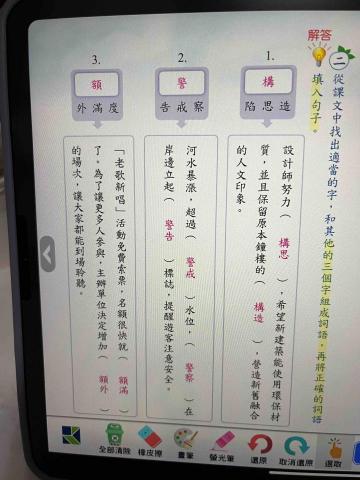 解答
二 從課文中找出適當的字,和其他的三個字組成詞語,再將正確的詞語
填入句子。
1.
構
陷思造
設計師努力( 構思 ),希望新建築能使用環保材
質,並且保留原本鐘樓的( 構造 ),營造新舊融合
的人文印象。
2.
警
告戒察
河水暴漲,超過( 警戒 )水位,( 警察 )在
岸邊立起( 警告 )標誌,提醒遊客注意安全。
3.
額
外滿度
「老歌新唱」活動免費索票,名額很快就( 額滿 )
了。為了讓更多人參與,主辦單位決定增加( 額外 )
的場次,讓大家都能到場聆聽。
全部清除 橡皮擦 畫筆 螢光筆 還原 取消還原 選取